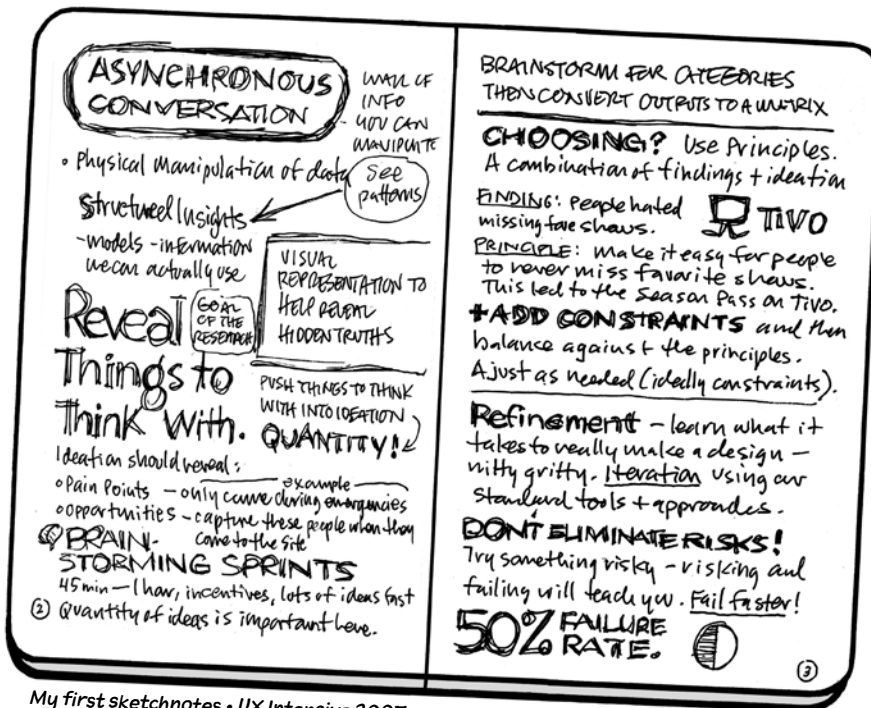 ASYNCHRONOUS
CONVERSATION
WALL OF
INFO
YOU CAN
MANIPULATE
• Physical manipulation of data
See
patterns
Structured Insights
-models -information
we can actually use
VISUAL
REPRESENTATION TO
HELP REVEAL
HIDDEN TRUTHS
Reveal
Things to
Think With.
GOAL
OF THE
RESEARCH
PUSH THINGS TO THINK
WITH INTO IDEATION
QUANTITY!
Ideation should reveal:
example
• Pain Points — only came during emergencies
• opportunities - capture these people when they
come to the site
BRAIN-
STORMING SPRINTS
45 min — 1 hour, incentives, lots of ideas fast
Quantity of ideas is important here.
2
BRAINSTORM FOR CATEGORIES
THEN CONVERT OUTPUTS TO A MATRIX
CHOOSING? Use Principles.
A combination of findings + ideation
FINDING: People hated
missing fave shows.
TIVO
PRINCIPLE: Make it easy for people
to never miss favorite shows.
This led to the Season Pass on Tivo.
+ADD CONSTRAINTS and then
balance against the principles.
Ajust as needed (ideally constraints).
Refinement - learn what it
takes to really make a design —
nitty gritty. Iteration using our
Standard tools + approaches.
DON'T ELIMINATE RISKS!
Try something risky - risking and
failing will teach you. Fail faster!
50% FAILURE
RATE.
3
My first sketchnotes • UX Intensive 2007